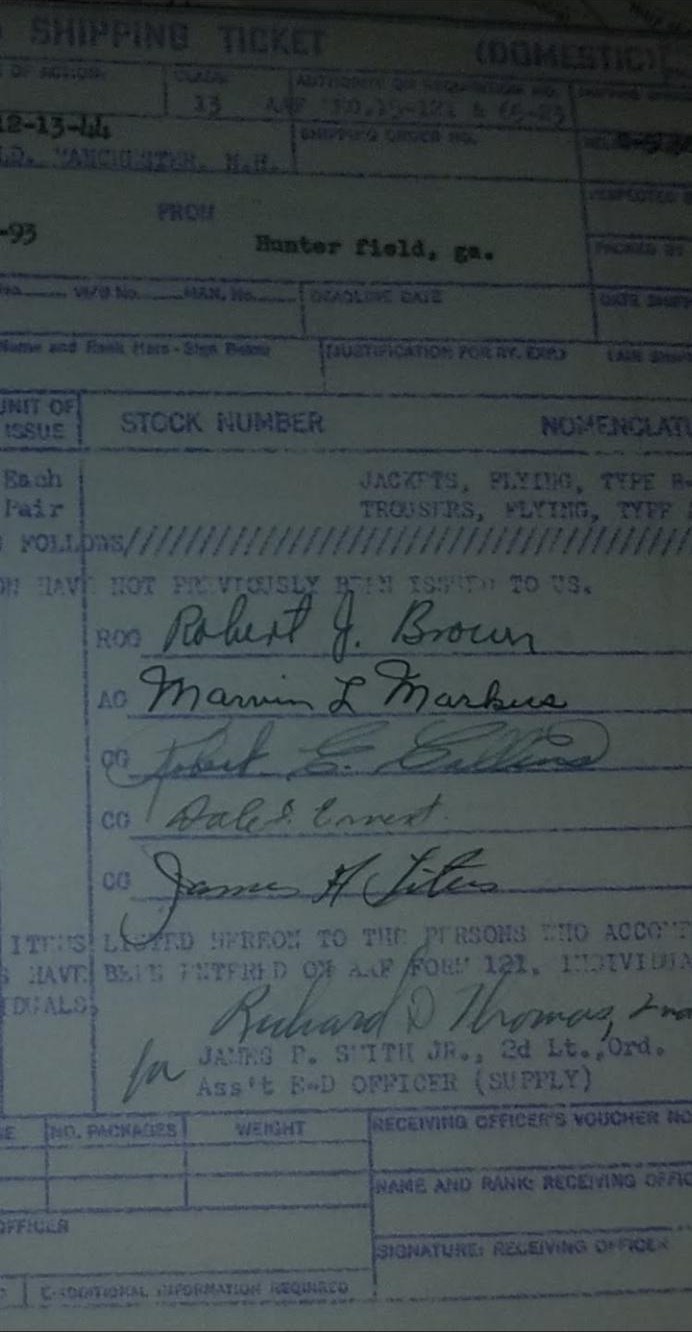 SHIPPING TICKET (DOMESTIC)
OF ACTION CLASS AUTHORITY OR REQUISITION NO.
13 AAF
12-13-44 SHIPPING ORDER NO.
MANCHESTER, N.H.
FROM
-93 Hunter field, ga.
W/B No. MAN. No. DEADLINE DATE DATE
Name and Rank Here - Sign Below JUSTIFICATION FOR RY. EXP.
UNIT OF ISSUE STOCK NUMBER NOMENCLATU
Each JACKETS, FLYING, TYPE B-
Pair TROUSERS, FLYING, TYPE
FOLLOWS////////////////////////////////
ON HAVE NOT PREVIOUSLY BEEN ISSUED TO US.
ROG Robert J. Brown
AG Marvin L Markus
CG Robert E. Collins
CG Dale E. Ernest
CG James H
ITEMS LISTED HEREON TO THE PERSONS WHO ACCOM
S HAVE BEEN ENTERED ON AAF FORM 121, INDIVIDUA
IDUALS
Richard D Thomas,
for JAMES P. SMITH JR., 2d Lt., Ord.
Ass't E-D OFFICER (SUPPLY)
NO. PACKAGES WEIGHT RECEIVING OFFICER'S VOUCHER NO
NAME AND RANK: RECEIVING OFFIC
OFFICER
SIGNATURE: RECEIVING OFFICER
E-ADDITIONAL INFORMATION REQUIRED